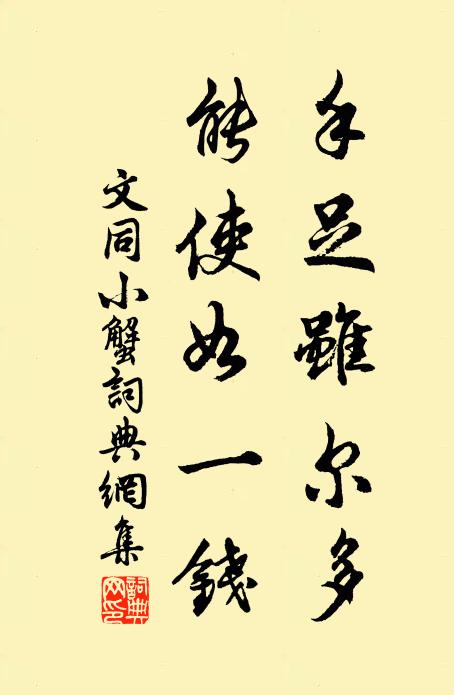 手足雖尔多
能使如一錢
文同小蟹詞典網集
詞典网印